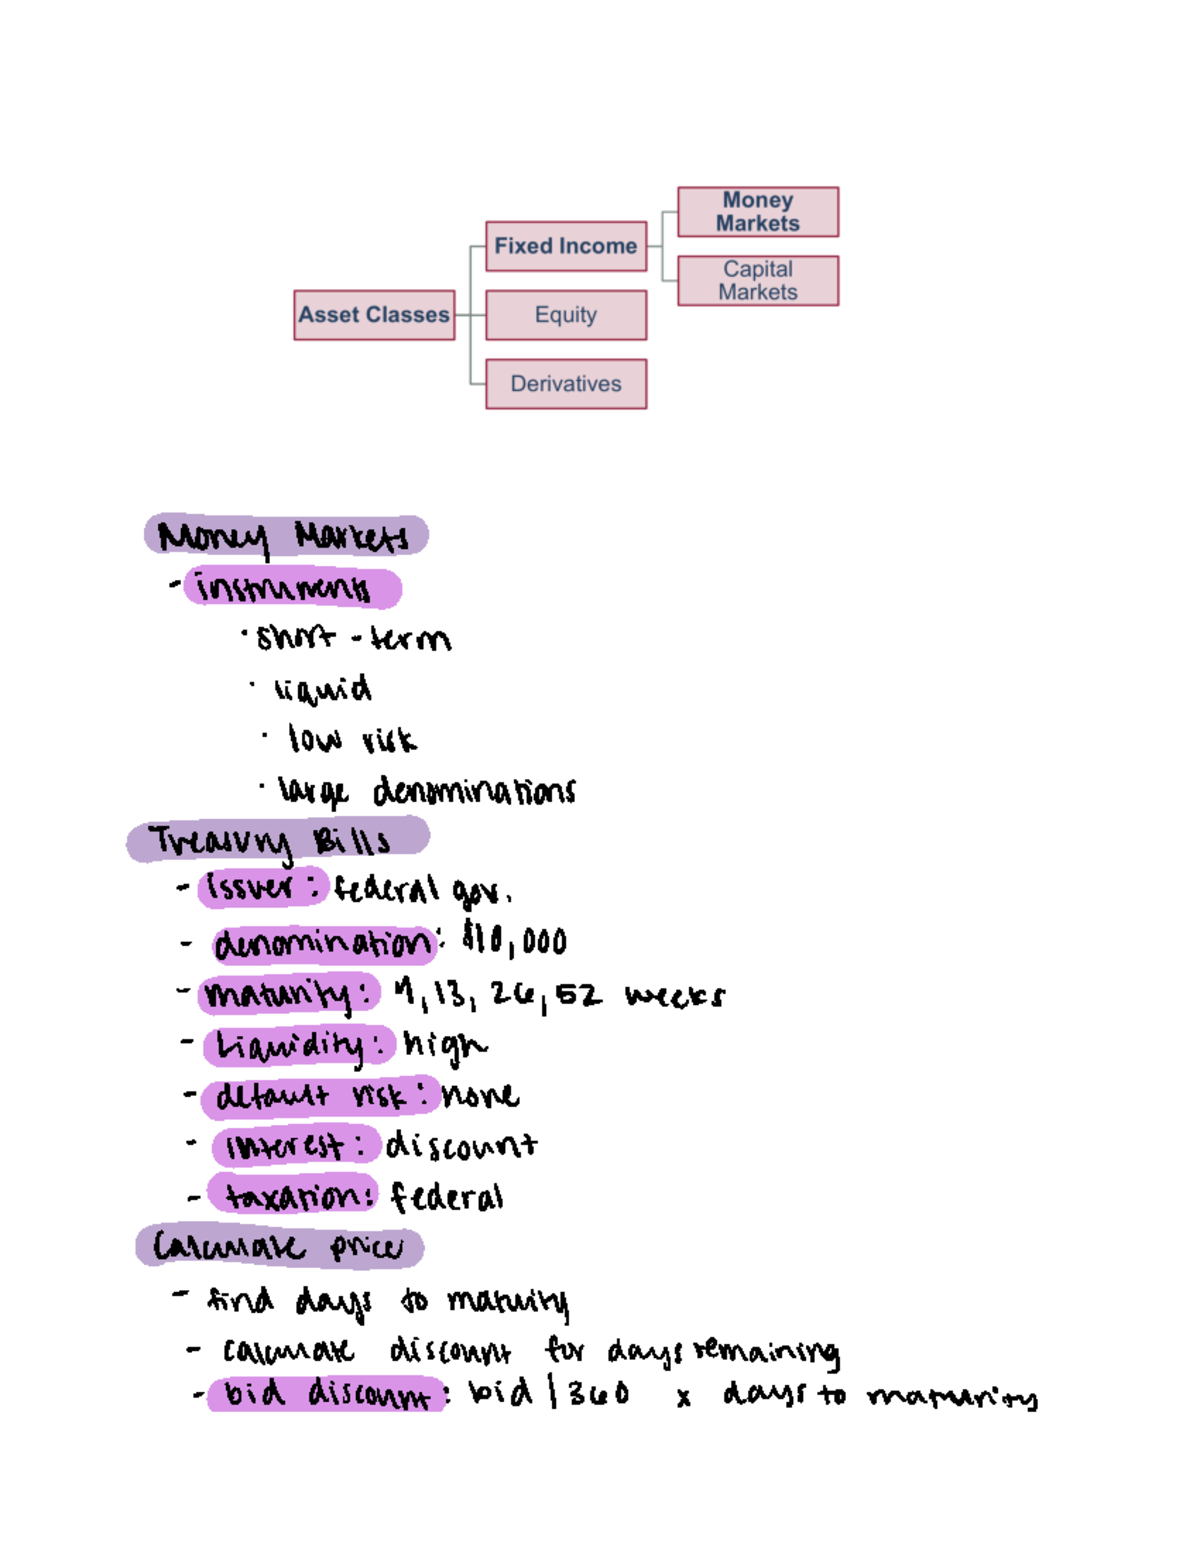 Money
Markets
Fixed Income
Capital
Markets
Asset Classes
Equity
Derivatives
Money Markets
- instruments
· short-term
· liquid
· low risk
· large denominations
Treasury Bills
- issuer: federal gov.
- denomination: $10,000
- maturity: 4, 13, 26, 52 weeks
- Liquidity: high
- default risk: none
- interest: discount
- taxation: federal
Calculate price
- find days to maturity
- calculate discount for days remaining
- bid discount: bid | 360 x days to maturity